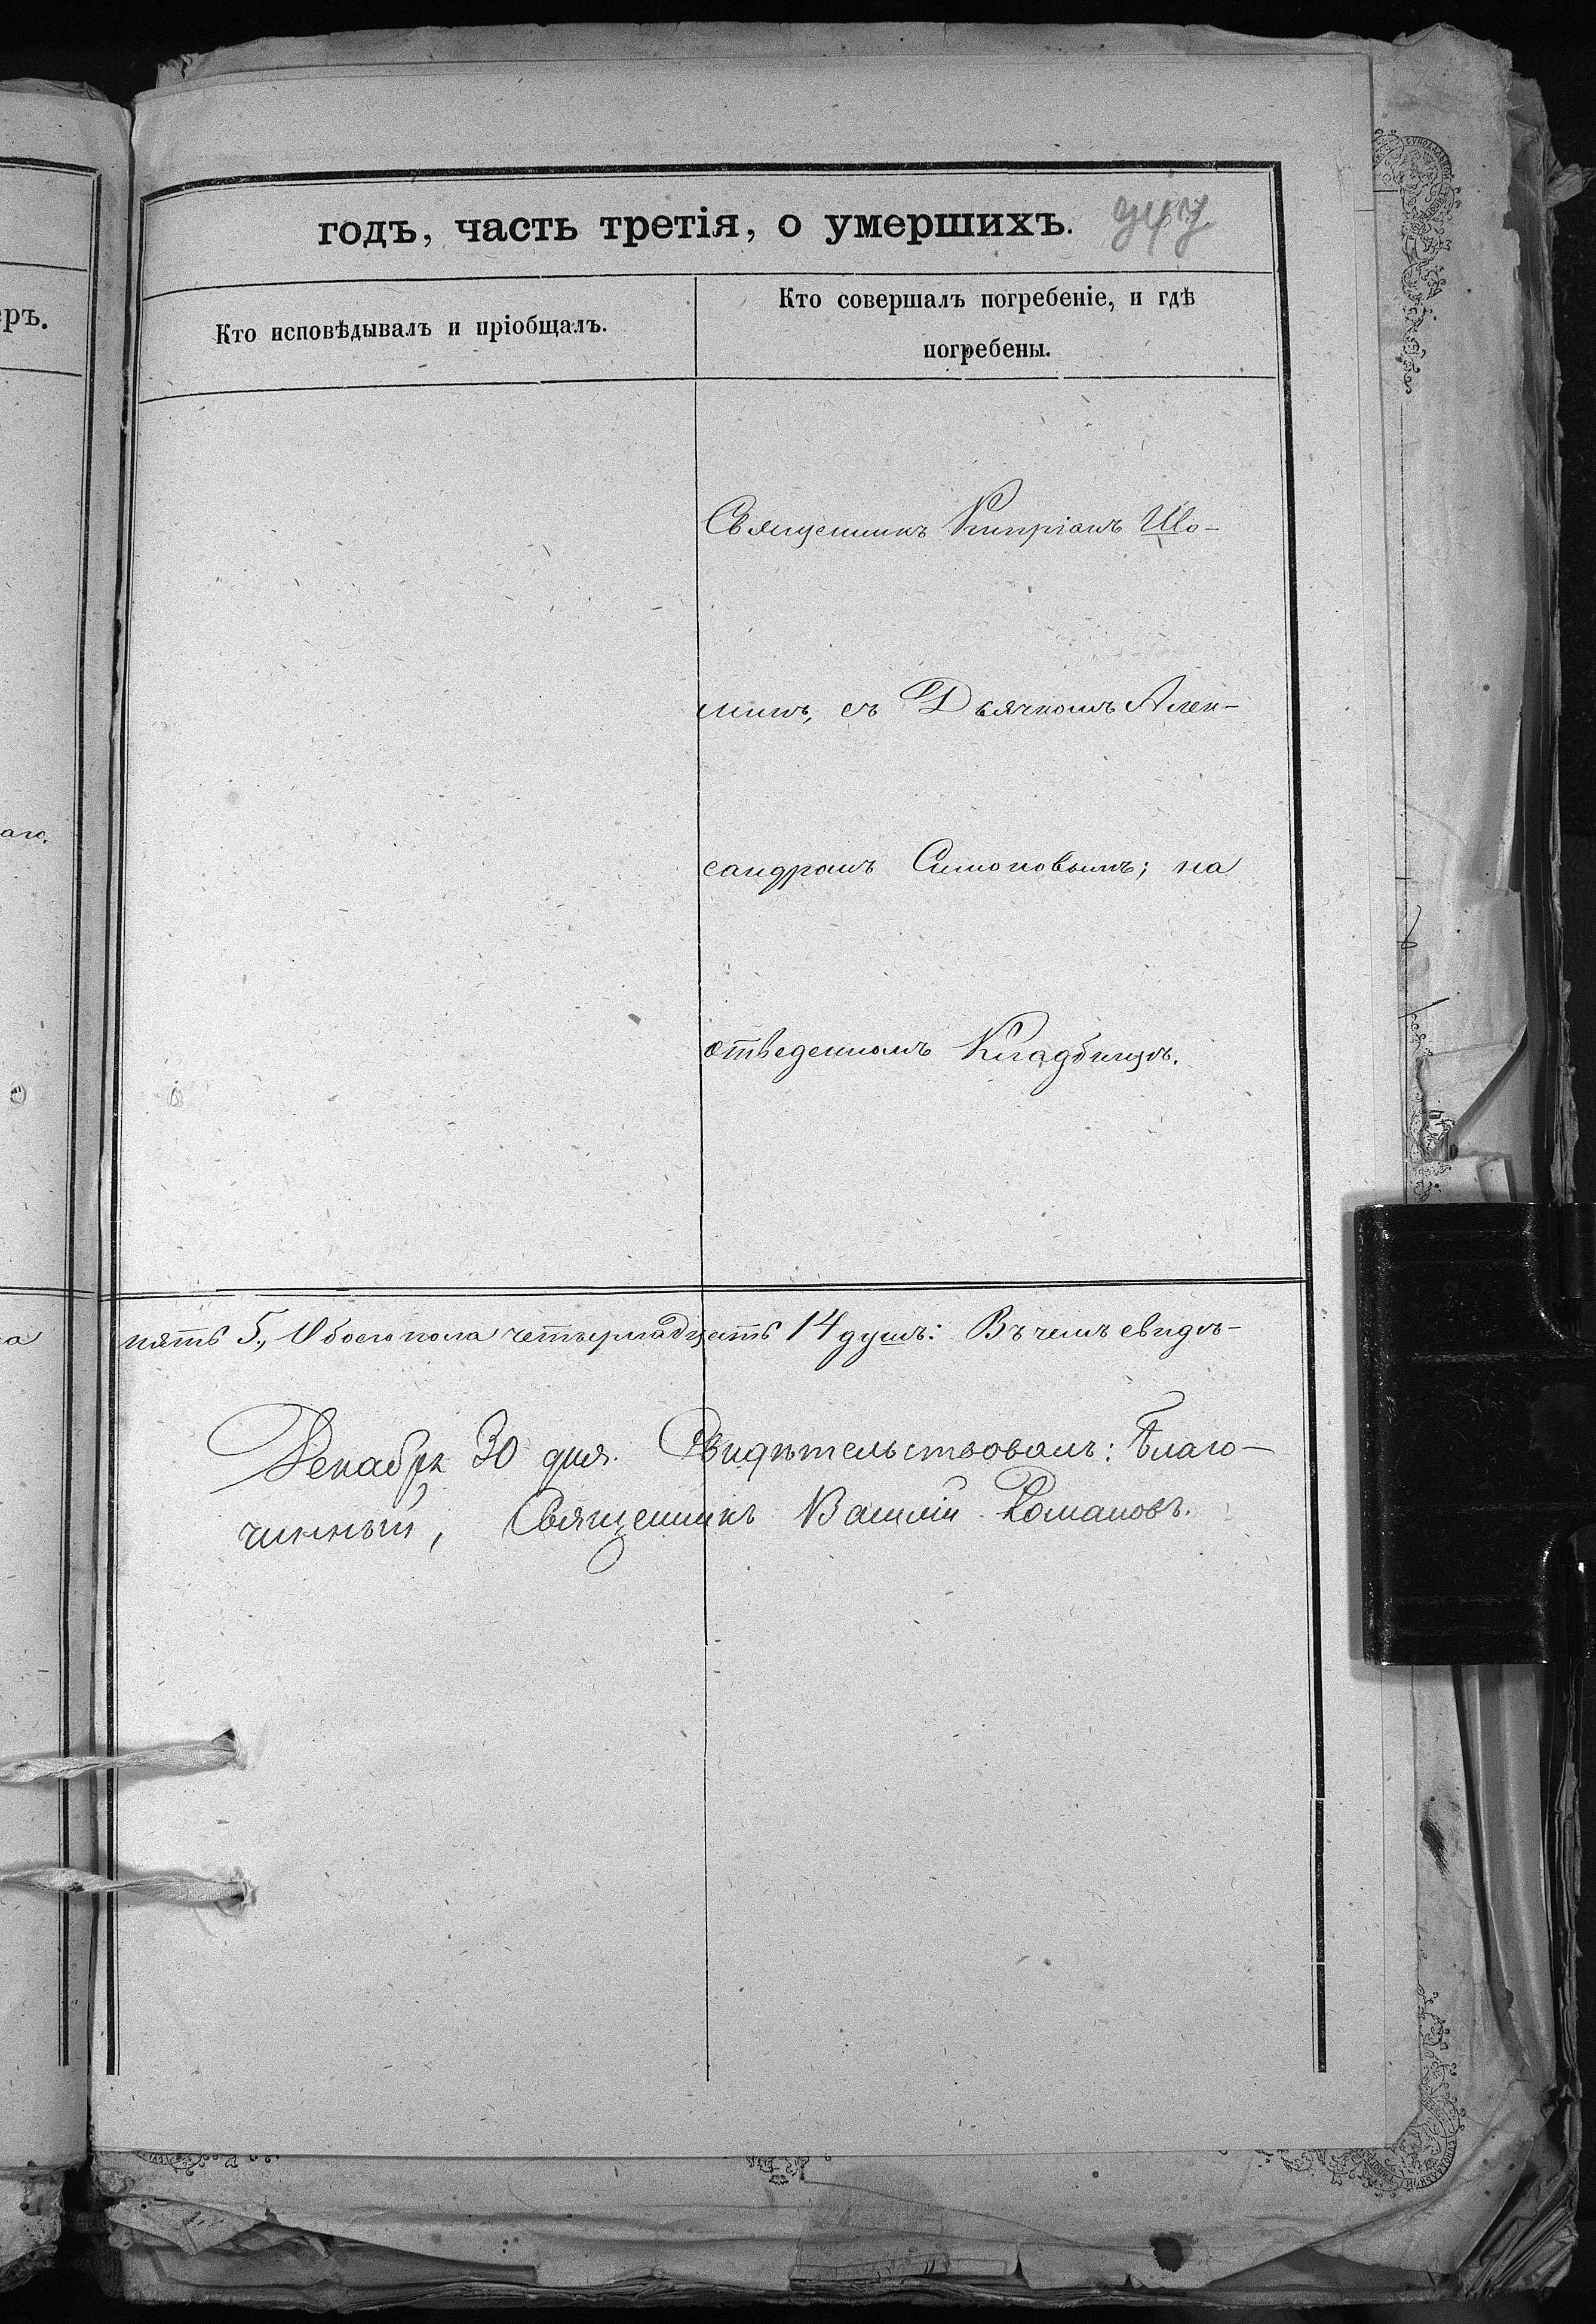 годъ, часть третія, о умершихъ.
еръ.
Кто исповѣдывалъ и пріобщалъ.
Кто совершалъ погребеніе, и гдѣ
погребены.
Священникъ Кипріанъ Шо-
минъ, съ Дьячкомъ Алек-
сандромъ Симоновымъ; на
отведенномъ Кладбищѣ.
аго.
а
пять 5., Обоего пола четырнадцать 14 душъ: Въ чемъ свидѣ-
Декабря 30 дня. Свидѣтельствовалъ: Благо-
чинный, Священникъ Василій Романовъ.